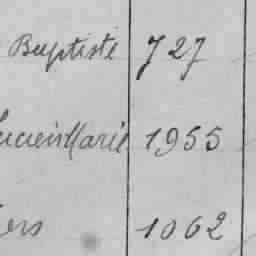 Baptiste 727
Lucien Marie 1955
ers 1062